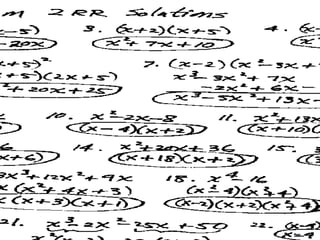 m 2RR Solutions
-5) 3. (x+2)(x+5) 4. (x-
-20x x²+7x+10
+5)² 7. (x-2)(x²-3x+
+5)(2x+5) x³-3x²+7x
²+20x+25 -2x²+6x-
x³-5x²+13x-
10. x²-2x-8 11. x²+13x
(x-4)(x+2) (x+10)(
6 14. x²+20x+36 15.
x+6) (x+18)(x+2)
3x³+12x²+9x 18. x⁴-16
x(x²+4x+3) (x²-4)(x²+4)
(x+3)(x+1) (x-2)(x+2)(x²+4)
21. x³-2x²-25x+50 22.